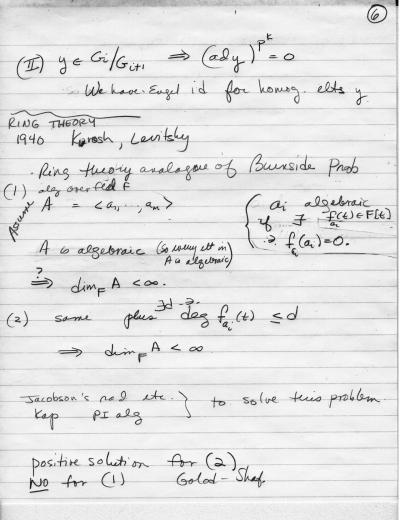 6
(II) y ∈ Gi/Gi+1 ⇒ (ad y)^{p^k} = 0
So We have Engel id for homog. elts y
RING THEORY
1940 Kurosh, Levitsky
. Ring theory analogue of Burnside Prob
(1) alg over field F
Assume A = <a1, ..., am>
ai algebraic
if ∃ f_{ai}(t) ∈ F[t]
∋. f_{ai}(ai) = 0.
A is algebraic (so every elt in A is algebraic)
?⇒ dim_F A < ∞.
(2) same plus ∃d ∋. deg f_{ai}(t) ≤ d
⇒ dim_F A < ∞
Jacobson's rad etc. } to solve this problem.
Kap PI alg
positive solution for (2)
NO for (1) Golod - Shaf.